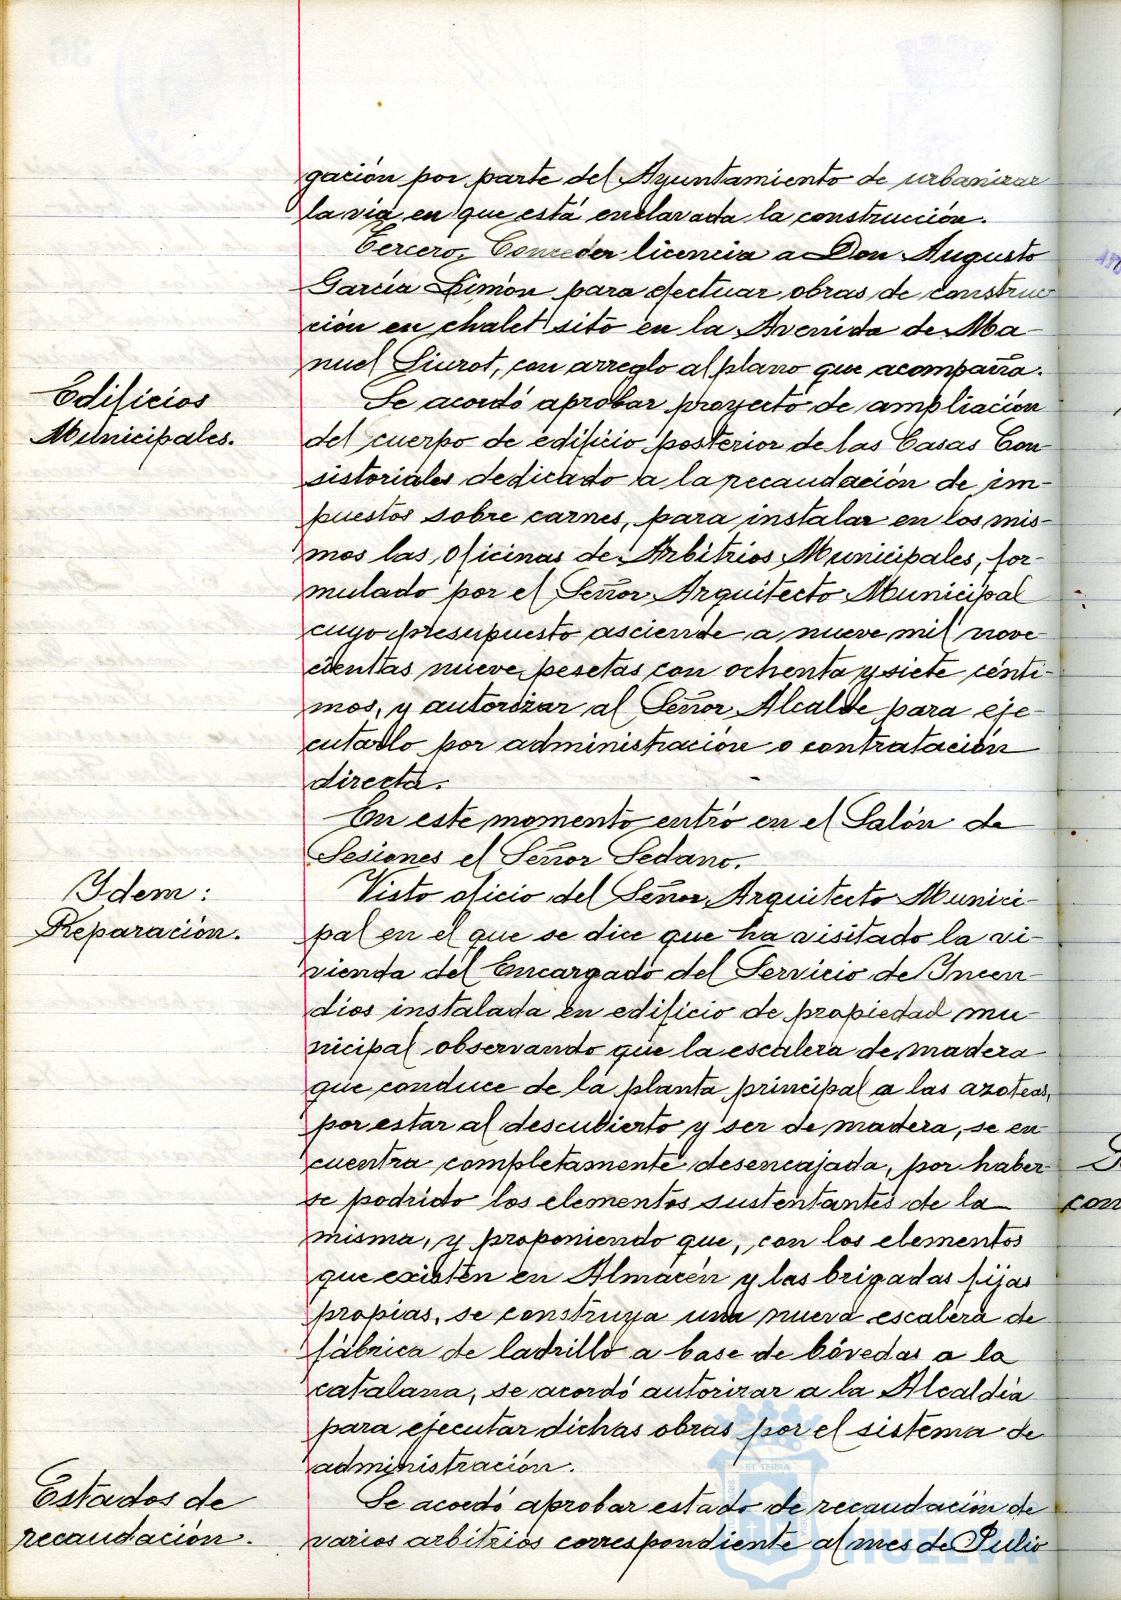 gación por parte del Ayuntamiento de urbanizar
la via en que está enclavada la construcción.
Tercero, Conceder licencia a Don Augusto
García Limón para efectuar obras de construc
ción en chalet sito en la Avenida de Ma-
nuel Siurot, con arreglo al plano que acompaña.
Edificios
Municipales.
Se acordó aprobar proyecto de ampliación
del cuerpo de edificio posterior de las Casas Con
sistoriales dedicado a la recaudación de im-
puestos sobre carnes, para instalar en los mis-
mos las oficinas de Arbitrios Municipales, for-
mulado por el Señor Arquitecto Municipal
cuyo presupuesto asciende a nueve mil nove
cientas nueve pesetas con ochenta y siete cénti-
mos, y autorizar al Señor Alcalde para eje-
cutarlo por administración o contratación
directa.
En este momento entró en el Salón de
Sesiones el Señor Sedano.
Idem:
Reparación.
Visto oficio del Señor Arquitecto Munici-
pal en el que se dice que ha visitado la vi-
vienda del Encargado del Servicio de Incen-
dios instalada en edificio de propiedad mu-
nicipal observando que la escalera de madera
que conduce de la planta principal a las azoteas,
por estar al descubierto y ser de madera, se en
cuentra completamente desencajada, por haber-
se podrido los elementos sustentantes de la
misma, y proponiendo que, con los elementos
que existen en Almacén y las brigadas fijas
propias, se construya una nueva escalera de
fábrica de ladrillo a base de bóvedas a la
catalana, se acordó autorizar a la Alcaldía
para ejecutar dichas obras por el sistema de
administración.
Estados de
recaudación.
Se acordó aprobar estado de recaudación de
varios arbitrios correspondiente al mes de Julio
HUELVA
con